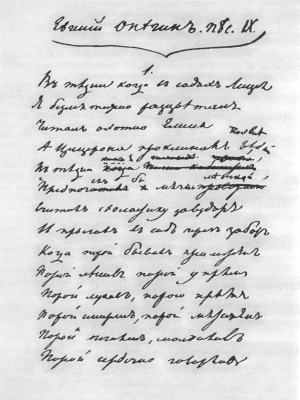 Евгений Онѣгинъ. пѣс. IX.
1.
Въ тѣ дни когда въ садахъ Лицея
Я безмятежно разцвѣталъ
Читалъ охотно Елисея
А Цицерона проклиналъ
Въ тѣ дни
мячикъ
Считалъ схоластику за вздоръ
И прыгалъ въ садъ чрезъ заборъ
Когда порой бывалъ прилеженъ
Порой лѣнивъ порой упрямъ
Порой лукавъ, порою прямъ
Порой смиренъ, порой мятеженъ
Порой печаленъ, молчаливъ
Порой сердечно говорливъ